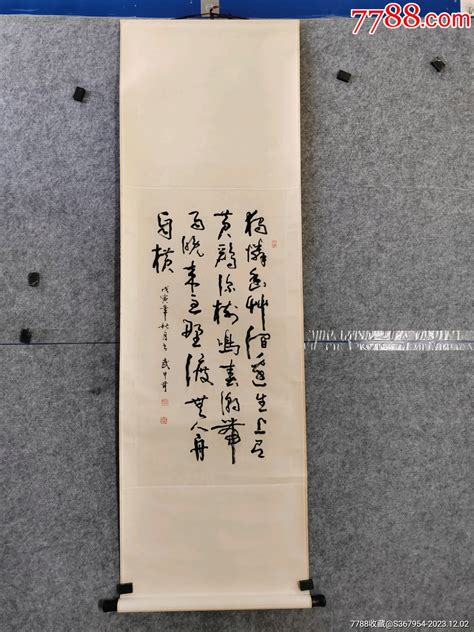 7788.com
獨憐幽艸澗邊生上有
黄鸝深樹鳴春潮帶
雨晚来急野渡無人舟
自横
戊寅年秋月武中奇
7788收藏@S367954-2023.12.02